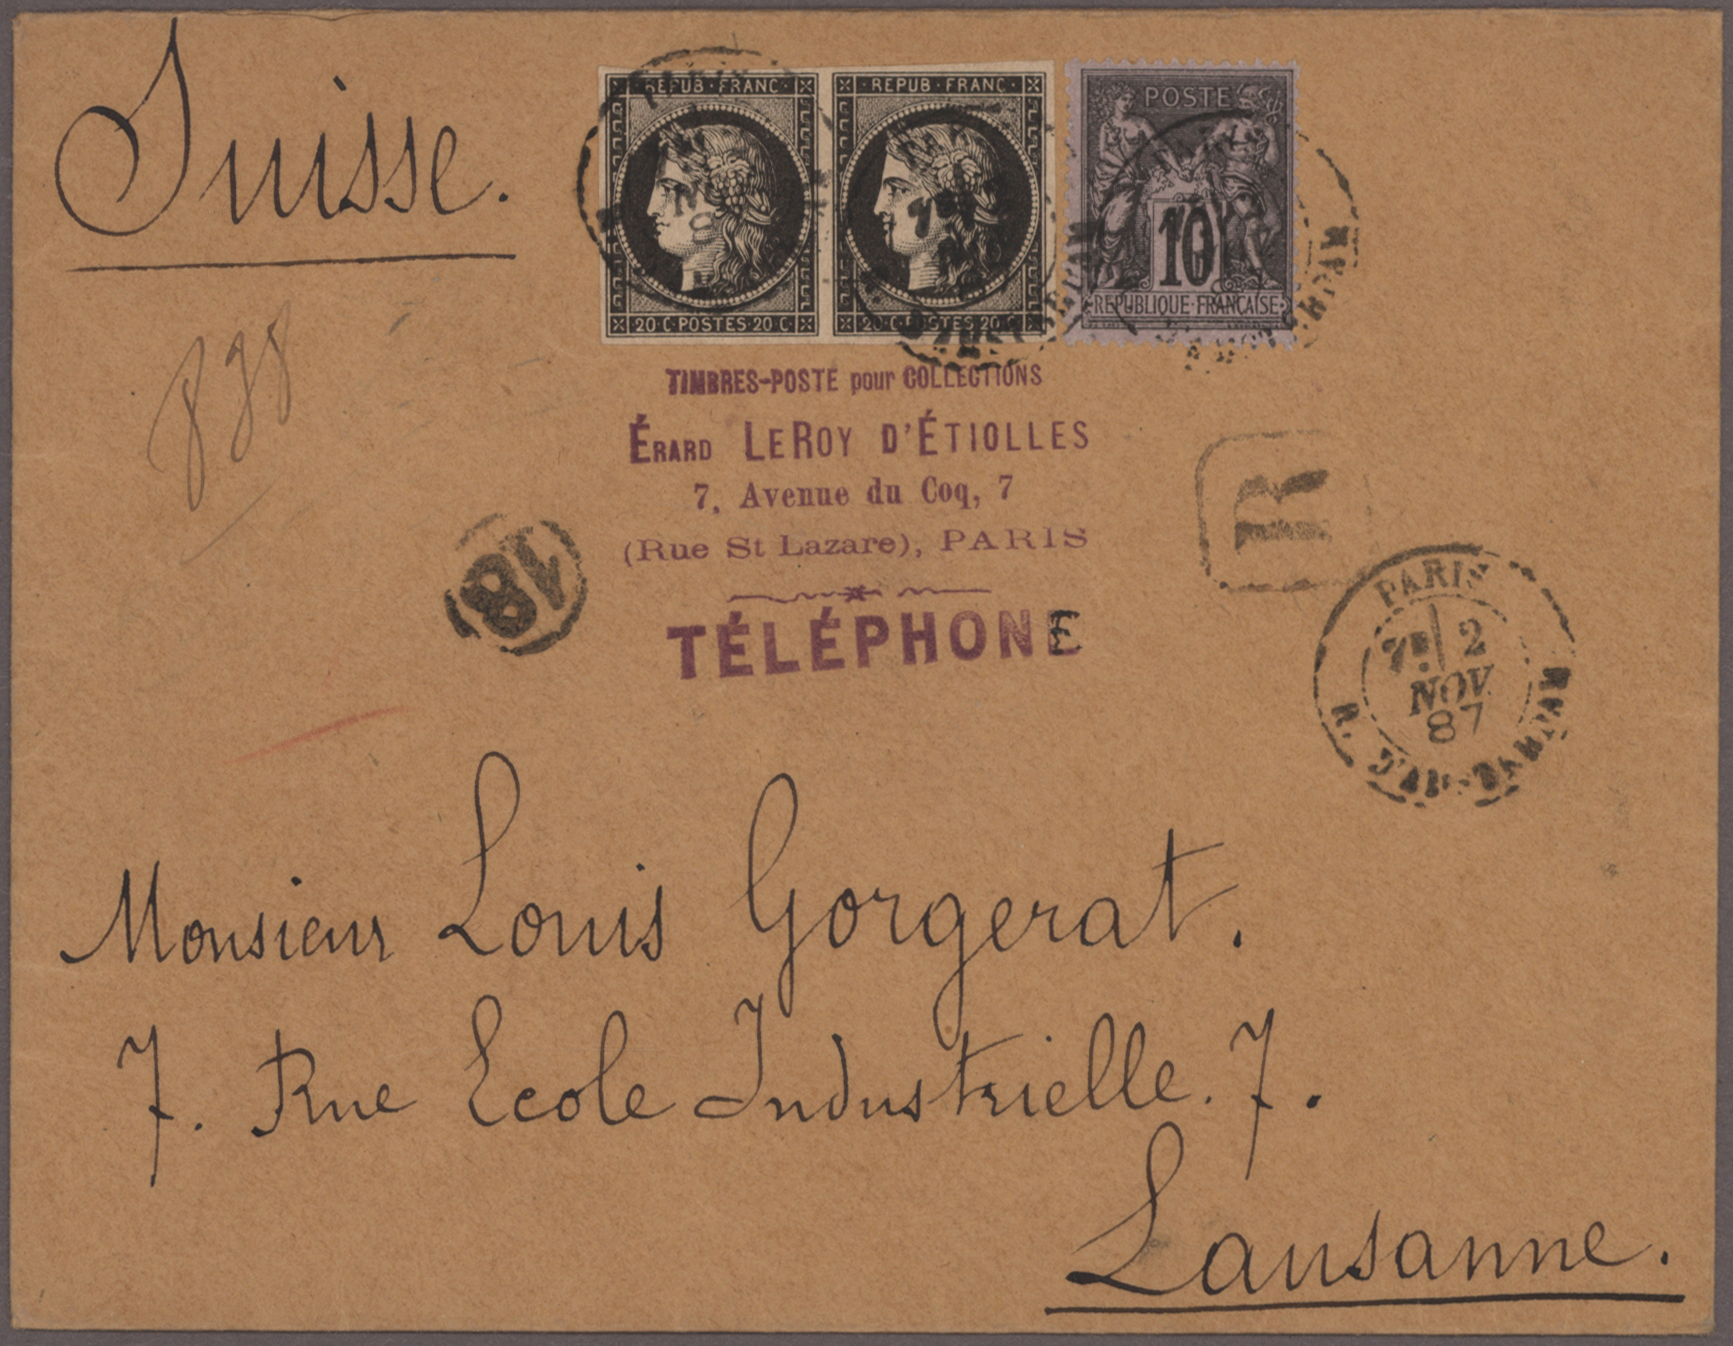 Suisse.
REPUB·FRANC·
20 C·POSTES·20 C·
REPUB·FRANC·
20 C·POSTES·20 C·
POSTE
10
REPUBLIQUE·FRANÇAISE
838
TIMBRES-POSTE pour COLLECTIONS
ÉRARD LEROY D'ÉTIOLLES
7, Avenue du Coq, 7
(Rue St Lazare), PARIS
TÉLÉPHONE
18
R
PARIS
7E 2
NOV
87
R. D'AMSTERDAM
Monsieur Louis Gorgerat.
7. Rue Ecole Industrielle. 7.
Lausanne.